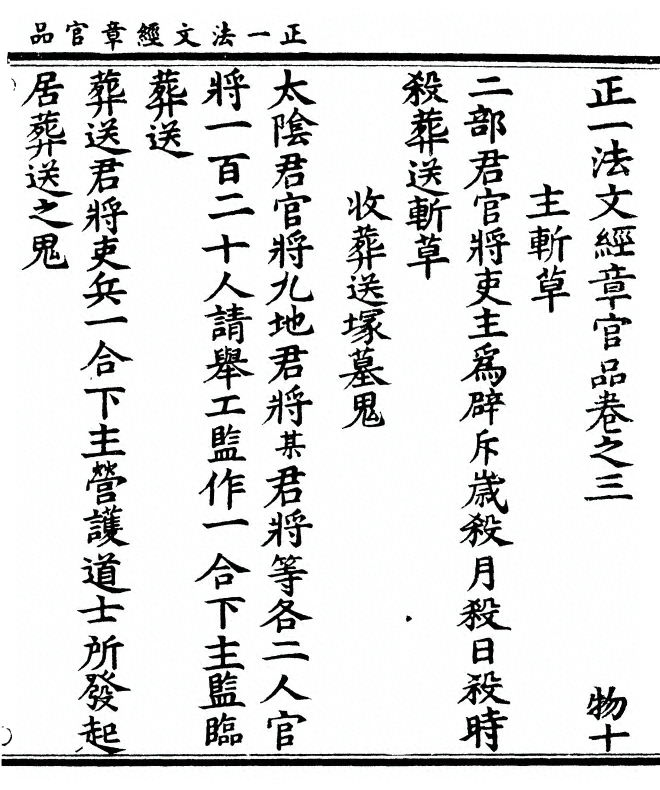 正一法文經章官品
正一法文經章官品卷之三
物十
主斬草
二部君官將吏主爲辟斥歲殺月殺日殺時
殺葬送斬草
收葬送塚墓鬼
太陰君官將九地君將某君將等各二人官
將一百二十人請舉工監作一合下主監臨
葬送
葬送君將吏兵一合下主營護道士所發起
居葬送之鬼